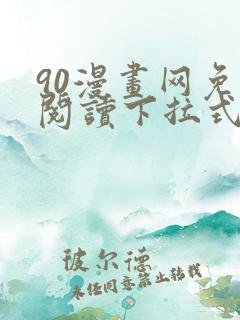 90漫畫网免
閱讀下拉式
彼尔德
未任同意禁止转载